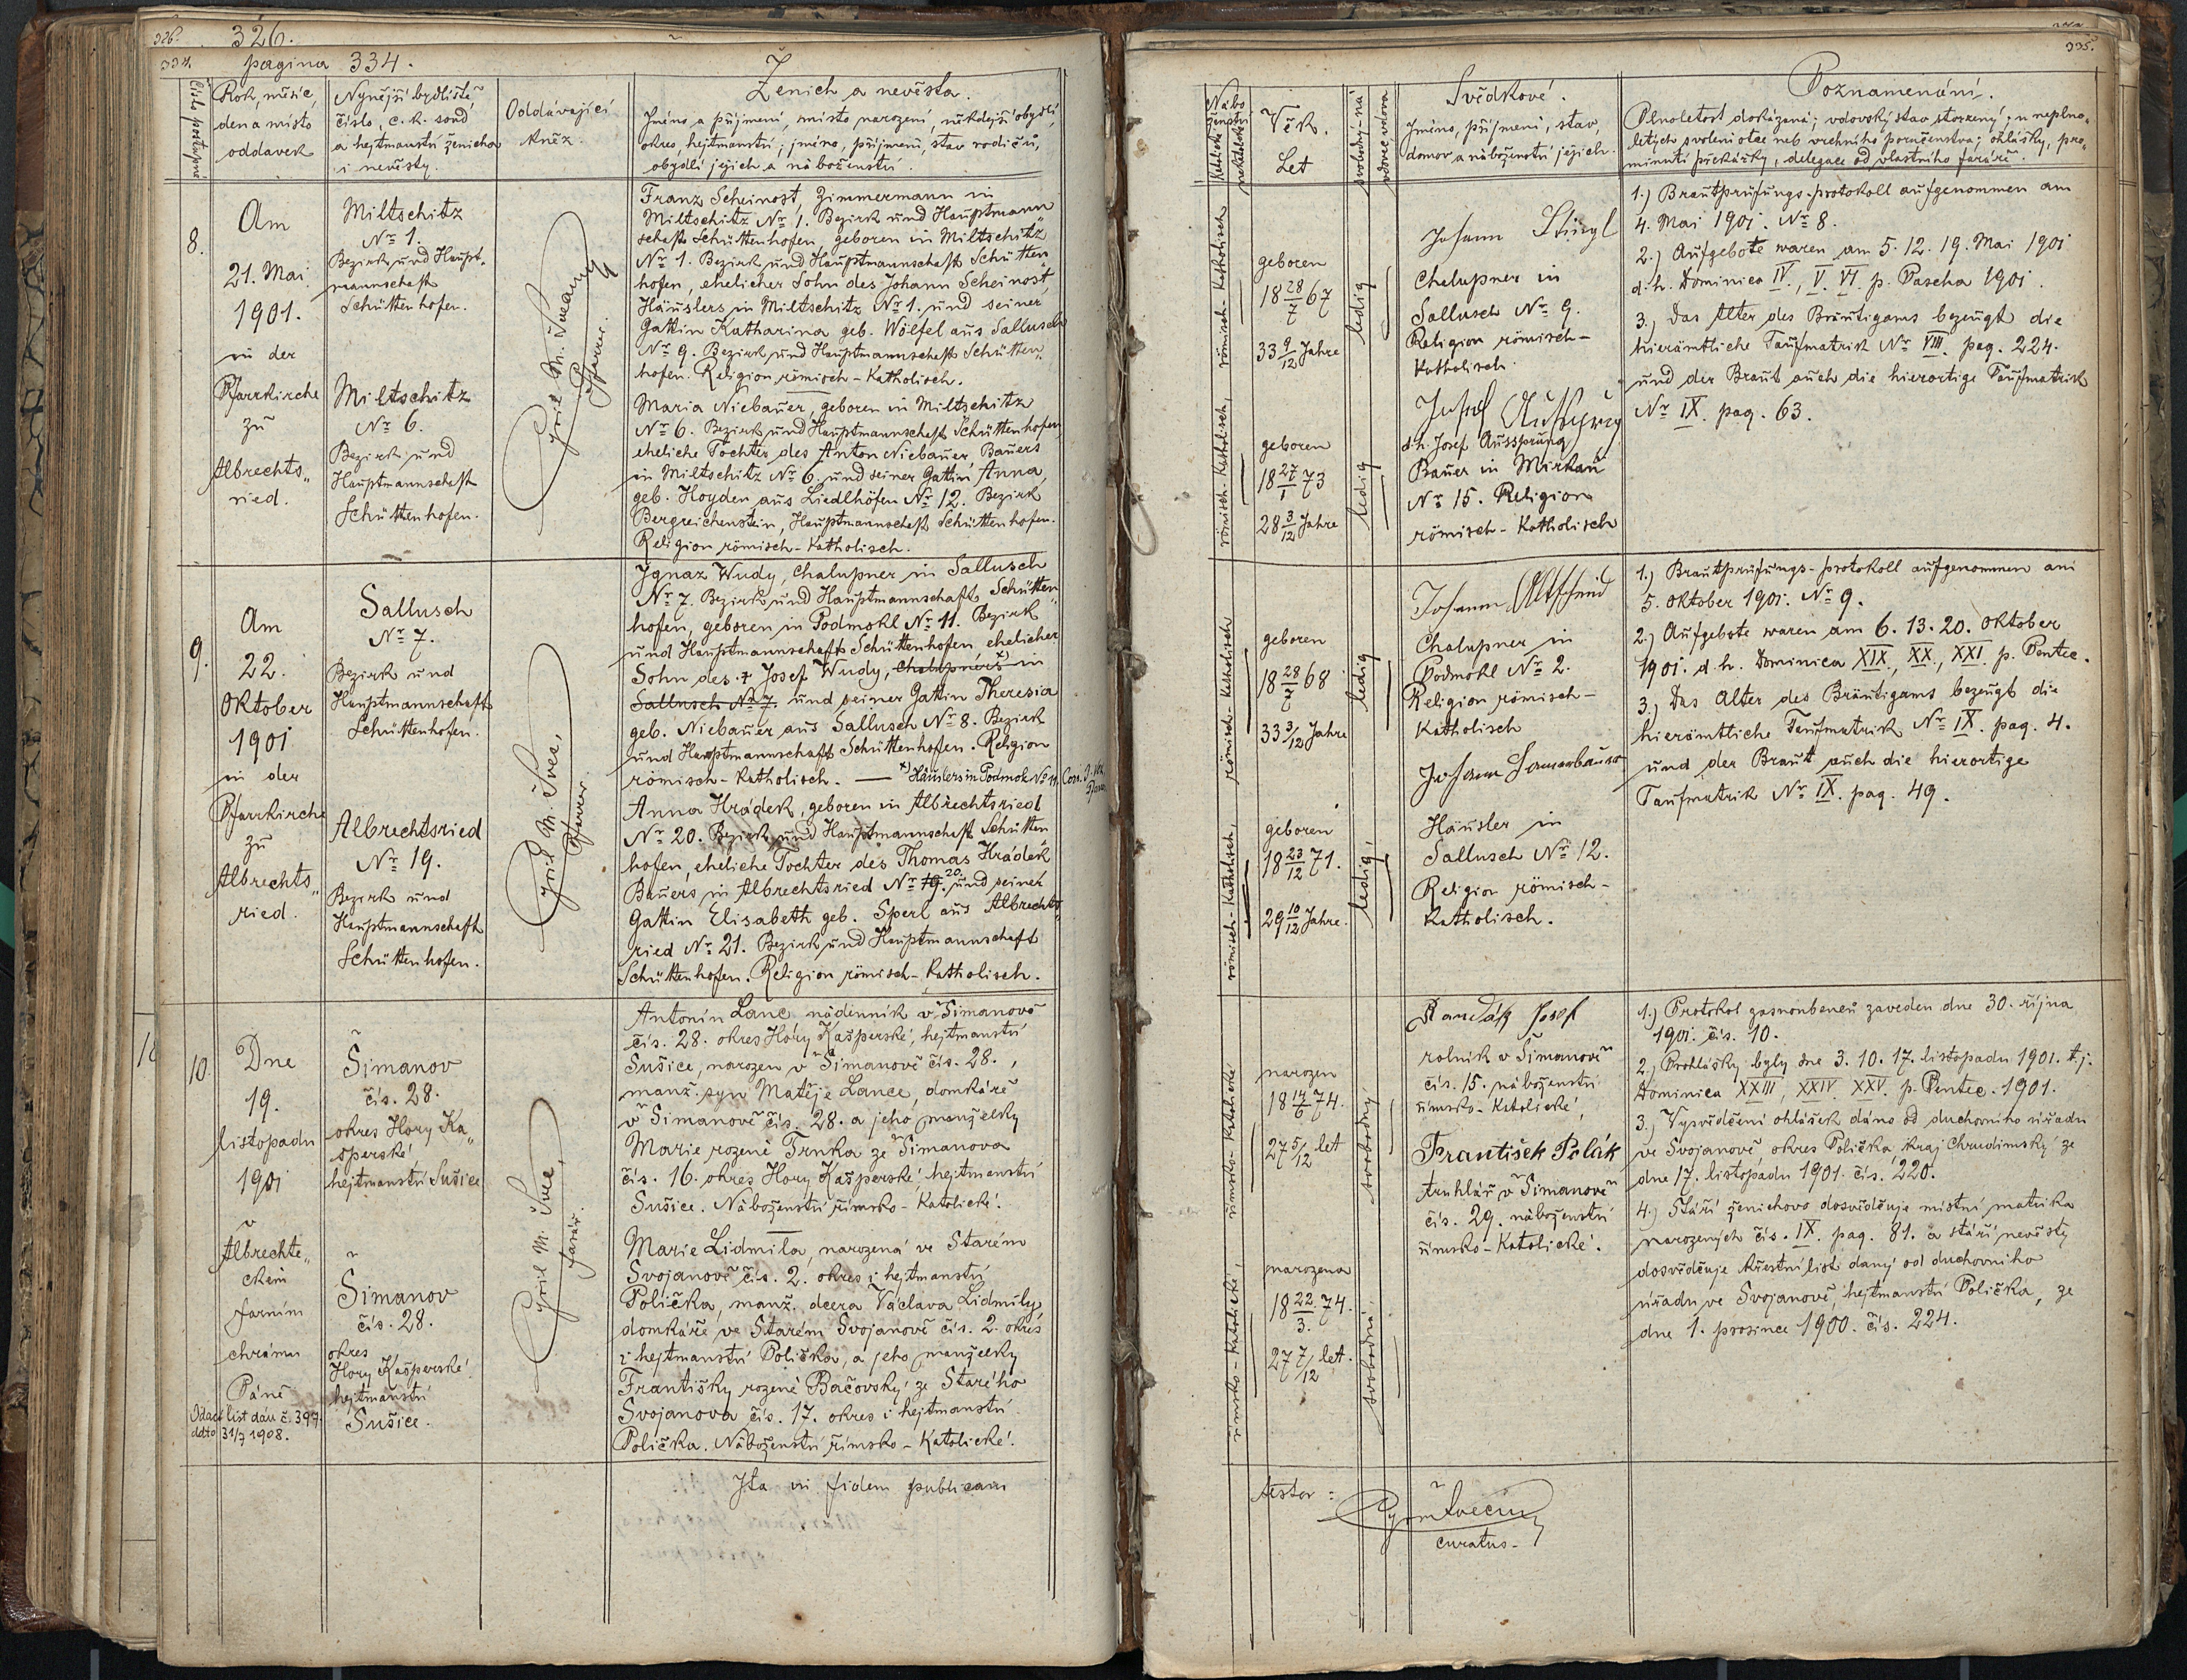 326.
326.
334.
pagina 334.
Číslo postupné
Rok, měsíc,
den a místo
oddavek
Nynější bydliště,
číslo, c. k. soud
a hejtmanství ženicha
i nevěsty.
Oddávající
kněz.
Ženich a nevěsta.
Jméno a příjmení, místo narození, někdejší obydlí,
okres, hejtmanství; jméno, příjmení, stav rodičů,
obydlí jejich a náboženství.
8.
Am
21. Mai
1901.
in der
Pfarrkirche
zu
Albrechts„
ried.
Miltschitz
Nr 1.
Bezirk und Haupt„
mannschaft
Schüttenhofen.
Miltschitz
Nr 6.
Bezirk und
Hauptmannschaft
Schüttenhofen.
Cyril M.
Pfarrer.
Franz Scheinost, Zimmermann in
Miltschitz Nr 1. Bezirk und Hauptmann
schaft Schüttenhofen, geboren in Miltschitz
Nr 1. Bezirk und Hauptmannschaft Schütten„
hofen, ehelicher Sohn des Johann Scheinost
Häuslers in Miltschitz Nr 1. und seiner
Gattin Katharina geb. Wölfel aus Sallusch
Nr 9. Bezirk und Hauptmannschaft Schütten„
hofen. Religion römisch-katholisch.
Maria Niebauer, geboren in Miltschitz
Nr 6. Bezirk und Hauptmannschaft Schüttenhofen,
eheliche Tochter des Anton Niebauer, Bauers
in Miltschitz Nr 6 und seiner Gattin Anna,
geb. Hoyden aus Liedlhöfen Nr 12. Bezirk
Bergreichenstein, Hauptmannschaft Schüttenhofen.
Religion römisch-katholisch.
9.
Am
22.
Oktober
1901
in der
Pfarrkirche
zu
Albrechts„
ried.
Sallusch
Nr 7.
Bezirk und
Hauptmannschaft
Schüttenhofen.
Albrechtsried
Nr 19.
Bezirk und
Hauptmannschaft
Schüttenhofen.
Cyril M. Švec,
Pfarrer.
Ignaz Wudy, Chalupner in Sallusch
Nr 7. Bezirk und Hauptmannschaft Schütten„
hofen, geboren in Podmokl Nr 11. Bezirk
und Hauptmannschaft Schüttenhofen, ehelicher
Sohn des † Josef Wudy, Chalupners x) in
Sallusch Nr 7. und seiner Gattin Theresia
geb. Niebauer aus Sallusch Nr 8. Bezirk
und Hauptmannschaft Schüttenhofen. Religion
römisch-katholisch. — x) Häuslers in Podmokl No 11.
Anna Hrádek, geboren in Albrechtsried
Nr 20. Bezirk und Hauptmannschaft Schütten
hofen, eheliche Tochter des Thomas Hrádek
Bauers in Albrechtsried Nr 19. 20. und seiner
Gattin Elisabeth geb. Sperl aus Albrechts„
ried Nr 21. Bezirk und Hauptmannschaft
Schüttenhofen. Religion römisch-katholisch.
10.
Dne
19.
listopadu
1901
v
Albrechte„
ckém
farním
chrámu
Páně
Odací list dán č. 397.
ddto 31/7 1908.
Šimanov
čís. 28.
okres Hory Ka„
šperské
hejtmanství Sušice
Šimanov
čís. 28.
okres
Hory Kašperské
hejtmanství
Sušice.
Cyril M. Švec,
farář.
Antonín Lanc nádenník v Šimanově
čís. 28. okres Hory Kašperské, hejtmanství
Sušice, narozen v Šimanově čís. 28.,
manž. syn Matěje Lance, domkáře
v Šimanově čís. 28. a jeho manželky
Marie rozené Trnka ze Šimanova
čís. 16. okres Hory Kašperské, hejtmanství
Sušice. Náboženství římsko-katolické.
Marie Lidmila, narozená ve Starém
Svojanově čís. 2. okres i hejtmanství
Polička, manž. dcera Václava Lidmily,
domkáře ve Starém Svojanově čís. 2. okres
i hejtmanství Polička, a jeho manželky
Františky rozené Bačovský ze Starého
Svojanova čís. 17. okres i hejtmanství
Polička. Náboženství římsko-katolické.
Ita in fidem publicam
335.
Nábo
ženství
Katolické
nekatolické
Věk.
Let
svobodný-ná
vdovec vdova
Svědkové.
Jméno, příjmení, stav,
domov a náboženství jejich.
Poznamenání.
Plnoletost dokázaná; vdovský stav stvrzený; u neplno„
letých svolení otce neb vrchního poručenstva; ohlášky, pro„
minutí překážky, delegace od vlastního faráře.
römisch-katholisch
geboren
18 28/7 67
33 9/12 Jahre
ledig
Johann Stiegl
Chalupner in
Sallusch Nr 9.
Religion römisch-
katholisch.
römisch-katholisch,
geboren
18 27/1 73
28 3/12 Jahre
ledig
Josef Aussprung
d. h. Josef Aussprung
Bauer in Mirkau
Nr 15. Religion
römisch-katholisch
1.) Brautprüfungs-protokoll aufgenommen am
4. Mai 1901. Nr 8.
2.) Aufgebote waren am 5. 12. 19. Mai 1901
d. h. Dominica IV., V. VI. p. Pascha 1901.
3.) Das Alter des Bräutigams bezeugt die
hierämtliche Taufmatrik Nr VIII. pag. 224.
und der Braut auch die hierortige Taufmatrik
Nr IX. pag. 63.
römisch-katholisch
geboren
18 28/7 68
33 3/12 Jahre
ledig
Johann
Chalupner in
Podmokl Nr 2.
Religion römisch-
katholisch
römisch-katholisch,
geboren
18 23/12 71.
29 10/12 Jahre.
ledig,
Johann
Häusler in
Sallusch Nr 12.
Religion römisch-
katholisch.
1.) Brautprüfungs-protokoll aufgenommen am
5. Oktober 1901. Nr 9.
2.) Aufgebote waren am 6. 13. 20. Oktober
1901. d. h. Dominica XIX., XX., XXI. p. Pentec.
3.) Das Alter des Bräutigams bezeugt die
hierämtliche Taufmatrik Nr IX. pag. 4.
und der Braut auch die hierortige
Taufmatrik Nr IX. pag. 49.
římsko-katolické
narozen
18 14/6 74.
27 5/12 let
svobodný
Kandák Josef
rolník v Šimanově
čís. 15. náboženství
římsko-katolické,
římsko-katolické,
narozena
18 22/3. 74.
27 7/12 let.
svobodná
František Polák
truhlář v Šimanově
čís. 29. náboženství
římsko-katolické.
1.) Protokol zasnoubenců zaveden dne 30. října
1901. čís. 10.
2.) Prohlášky byly dne 3. 10. 17. listopadu 1901. tj.
Dominica XXIII, XXIV. XXV. p. Pentec. 1901.
3.) Vysvědčení ohlášek dáno od duchovního úřadu
ve Svojanově, okres Polička, kraj Chrudimský ze
dne 17. listopadu 1901. čís. 220.
4.) Stáří ženichovo dosvědčuje místní matrika
narozených čís. IX. pag. 81. a stáří nevěsty
dosvědčuje křestní list daný od duchovního
úřadu ve Svojanově, hejtmanství Polička, ze
dne 1. prosince 1900. čís. 224.
testor:
curatus.